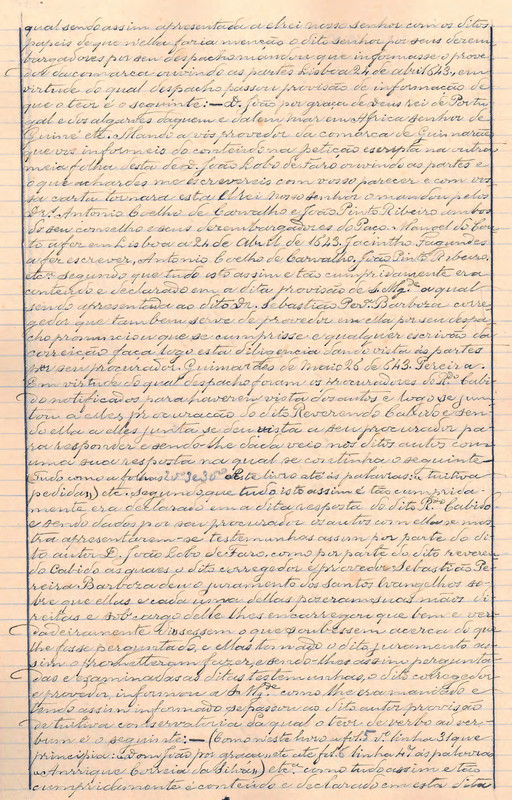 qual sendo assim apresentada a elrei nosso senhor com os ditos
papeis de que n'ella faria menção o dito senhor por seus desem
bargadores por seu despacho mandou que informasse o prove
dor da comarca ouvindo as partes Lisboa 24 de abril 643, em
virtude do qual despacho passou provisão de informação de
que o teor é o seguinte: — D. João por graça de Deus rei de Portu
gal e dos algarves daquem e dalem mar em Africa senhor de
Guiné etc. Mando a vós provedor da comarca de Guimarães
que vos informeis do conteúdo na petição escripta na outra
meia folha desta de D. João Lobo de Faro ouvindo as partes e
o que achardes me escrevereis com vosso parecer e com vos
sa carta tornará esta. Elrei nosso senhor o mandou pelos
Drs. Antonio Coelho de Carvalho e João Pinto Ribeiro ambos
do seu conselho e seus desembargadores do Paço. Manoel do Cou
to a fez em Lisboa a 24 de Abril de 1643. Jacintho Fagundes
a fez escrever, Antonio Coelho de Carvalho, João Pinto Ribeiro,
etc. segundo que tudo isto assim e tão cumpridamente era
conteudo e declarado em a dita provisão de S. Mg.de a qual
sendo apresentada ao dito Dr. Sebastião Per.ª Barboza corre
gedor que tambem serve de provedor em ella por seu despa
cho pronunciou que se cumprisse e qualquer escrivão da
correição faça logo esta diligencia dando vista ás partes
por seu procurador. Guimarães de Maio 26 de 643. Pereira.
Em virtude do qual despacho foram os procuradores do R.do Cabi
do notificados para haverem vista dos autos e logo se jun
tou a elles procuração do dito Reverendo Cabido e sen
do ella a elles junta se deu vista a seu procurador pa
ra responder e sendo-lhe dada veio nos ditos autos com
uma sua resposta na qual se continha o seguinte
Tudo como a folhas 2 v.º 3 e 3 v.º deste livro até ás palavras: "tuitiva
pedida") etc. Segundo que tudo isto assim e tão cumprida
mente era declarado em a dita resposta do dito R.do Cabido
e sendo dados por seu procurador os autos com ella se mos
tra apresentarem-se testemunhas assim por parte do di
to autor D. João Lobo de Faro, como por parte do dito reveren
do Cabido ás quaes o dito corregedor e provedor Sebastião Pe
reira Barboza deu o juramento dos santos Evangelhos so
bre que ellas e cada uma dellas pozeram suas mãos di
reitas e sob cargo delle lhes encarregou que bem e ver
dadeiramente dissessem o que soubessem acerca do que
lhe fosse perguntado, e ellas tomado o dito juramento as
sim o prometteram fazer, e sendo-lhes assim pergunta
das e examinadas as ditas testemunhas, o dito corregedor
e provedor, informou a S. Mg.de como lhe era mandado e
sendo assim informado se passou ao dito autor provisão
de tuitiva conservatoria da qual o teor de verbo ad ver
bum é o seguinte: — (Como neste livro a fol. 5 v.º linha 31 que
principia: "Dom João por graça" etc. até fol. 6 linha 4.ª ás palavras
"Anrrique Correia da Silva") etc. como tudo assim e tão
cumpridamente é conteudo e declarado em esta dita